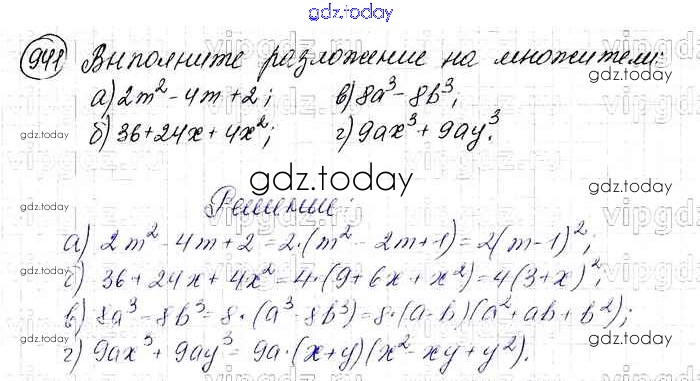 gdz.today
941 Выполните разложение на множители:
а) 2m² - 4m + 2; в) 8a³ - 8b³;
б) 36 + 24x + 4x²; г) 9ax³ + 9ay³.
gdz.today
Решение:
а) 2m² - 4m + 2 = 2·(m² - 2m + 1) = 2(m - 1)²;
б) 36 + 24x + 4x² = 4·(9 + 6x + x²) = 4(3 + x)²;
в) 8a³ - 8b³ = 8·(a³ - 8b³) = 8·(a - b)(a² + ab + b²);
г) 9ax³ + 9ay³ = 9a·(x + y)(x² - xy + y²).
gdz.today